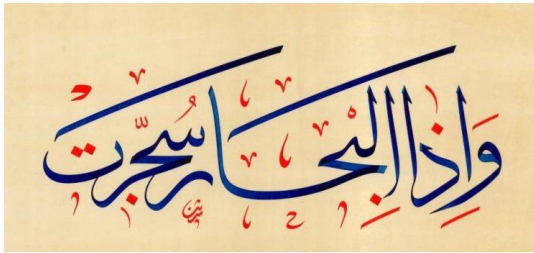 وَاِذَا البِحَار سُجِّرَت